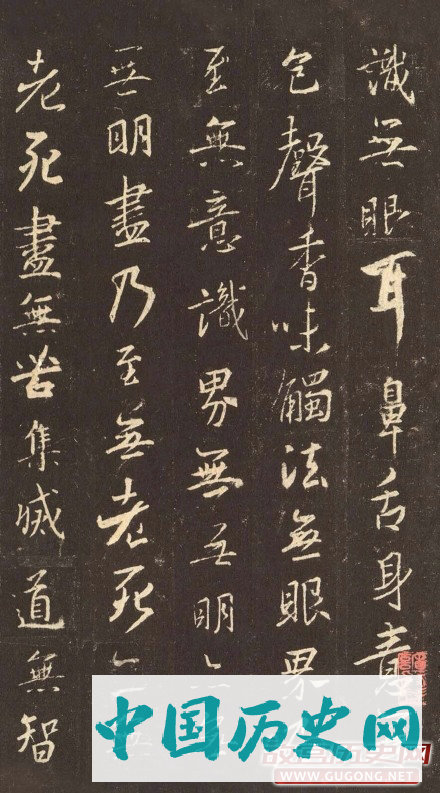 識無眼耳鼻舌身意
色聲香味觸法無眼界
至無意識界無無明亦
無明盡乃至無老死亦
老死盡無苦集滅道無智
中国历史网
WWW.GUGONG.NET